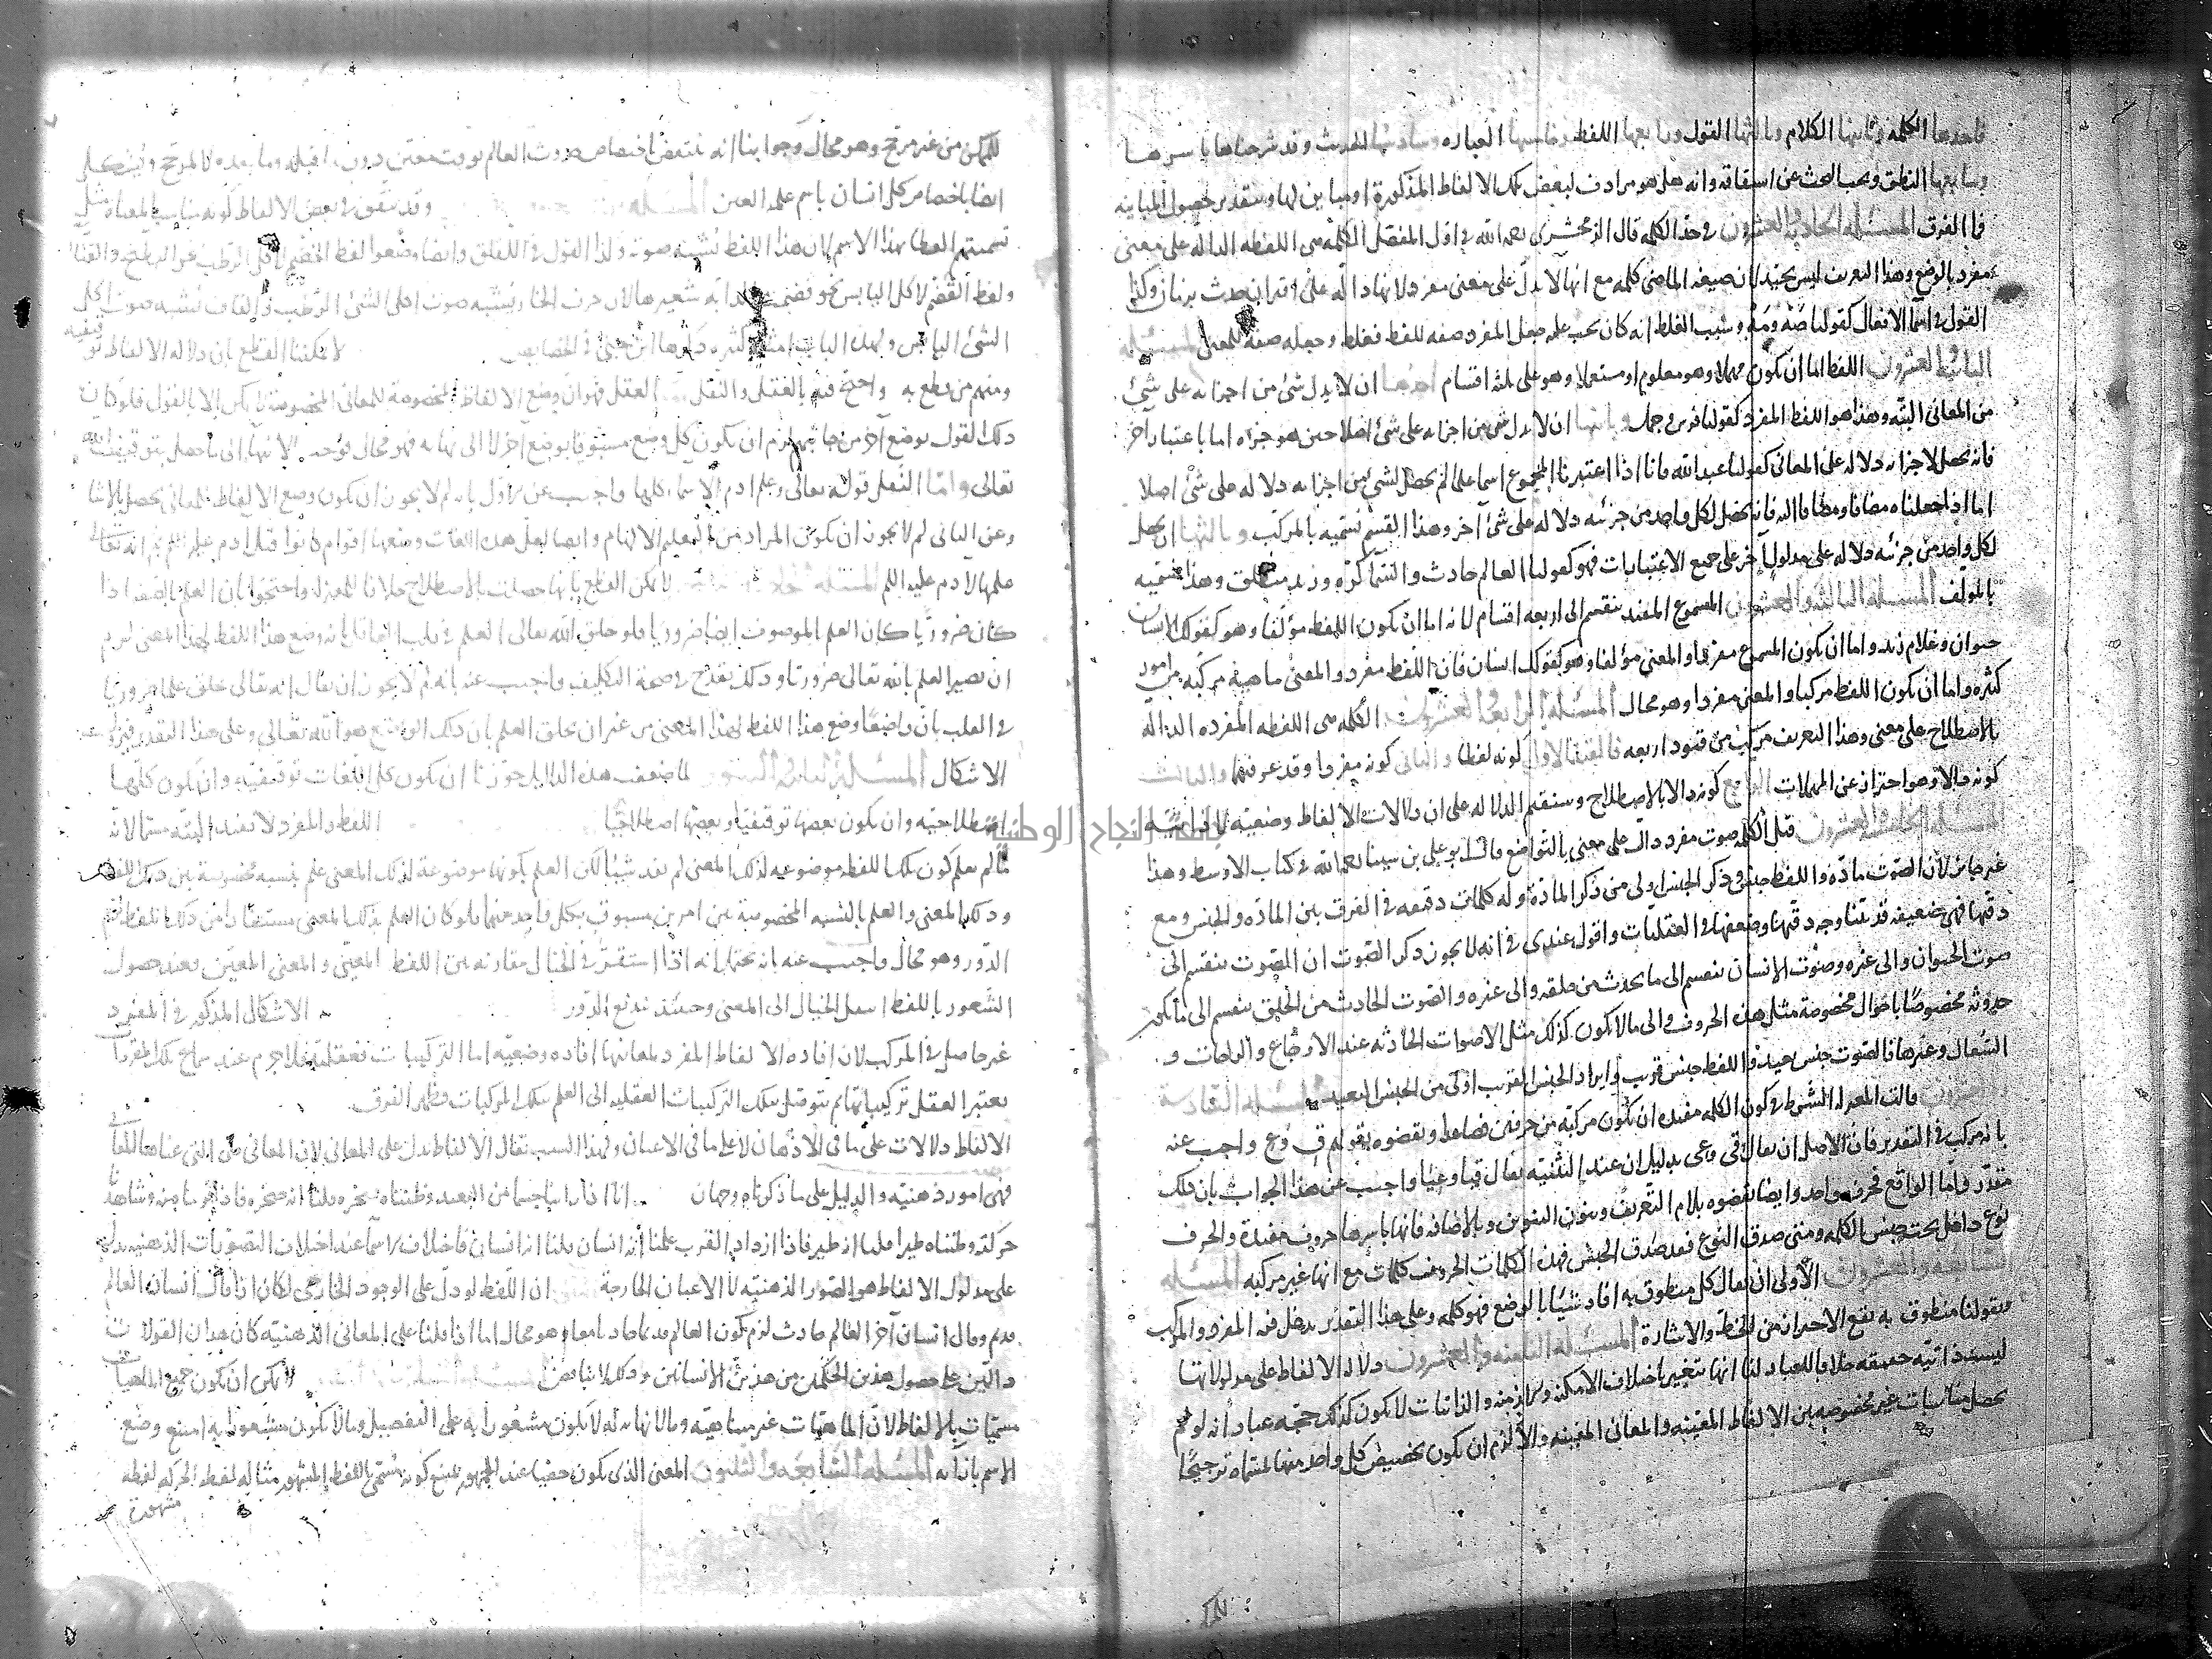 فاحدها الكلمه وثانيها الكلام وثالثها القول ورابعها اللفظ وخامسها العباره وسادسها الحديث وقد شرحناها باسرها
وسابعها النطق ويجب البحث عن اشتقاقه وانه هل هو مرادف لبعض تلك الالفاظ المذكورة او مباين لها وبتقدير حصول المباينه
فما الفرق المسئله الحاديه والعشرون في حد الكلمه قال الزمخشرى رحمه الله في اول المفصل الكلمه هى اللفظه الداله على معنى
مفرد بالوضع وهذا التعريف ليس بجيد لان صيغه الماضى كلمه مع انها لا تدل على معنى مفرد لانها دالة على اقتران حدث بزمان وكذا
القول في اسما الافعال كقولنا صَهْ ومَهْ وسبب الغلط انه كان يجب عليه جعل المفرد صفه للفظ فغلط وجعله صفه للمعنى المسئله
الثانيه والعشرون اللفظ اما ان يكون مهملا وهو معلوم او مستعملا وهو على ثلثه اقسام احدها ان لا يدل شئ من اجزائه على شئ
من المعانى البته وهذا هو اللفظ المفرد كقولنا فرس وجمل وثانيها ان لا يدل شئ من اجزائه على شئ اصلا حين هو جزاه اما باعتبار آخر
فانه يحصل لاجزائه دلاله على المعانى كقولنا عبد الله فانا اذا اعتبرنا المجموع اسما علما لم يحصل لشئ من اجزائه دلاله على شئ اصلا
اما اذا جعلناه مضافا ومضافا اليه فانه يحصل لكل واحد من جزئيه دلاله على شئ آخر وهذا القسم نسميه بالمركب وثالثها ان يحصل
لكل واحد من جزئيه دلاله على مدلول آخر على جميع الاعتبارات فهو كقولنا العالم حادث والسما كرة وزيد منطلق وهذا نسميه
بالمولف المسئله الثالثه والعشرون المسموع المفيد ينقسم الى اربعه اقسام لانه اما ان يكون اللفظ مؤلفا والمعنى مؤلفا وهو كقولك الانسان
حيوان وغلام زيد واما ان يكون المسموع مفردا والمعنى مؤلفا وهو كقولك انسان فان اللفظ مفرد والمعنى ماهية مركبه من امور
كثيره واما ان يكون اللفظ مركبا والمعنى مفردا وهو محال المسئله الرابعه والعشرون الكلمه هى اللفظه المفرده الداله
بالاصطلاح على معنى وهذا التعريف مركب من قيود اربعه فالقيد الاول كونه لفظا والثانى كونه مفردا وقد عرفتهما والثالث
كونه دالا وهو احتراز عن المهملات الرابع كونه دالا بالاصطلاح وسنقيم الدلاله على ان دلالات الالفاظ وضعيه لا ذاتيه
المسئله الخامسه والعشرون قيل الكلمه صوت مفرد دال على معنى بالتواضع قال ابو على بن سينا رحمه الله في كتاب الاوسط وهذا
غير جائز لان الصوت مادة واللفظ جنس وذكر الجنس اولى من ذكر المادة وله كلمات دقيقه في الفرق بين المادة والجنس ومع
دقتها فهى ضعيفه قد بينا وجه دقتها وضعفها في العقليات واقول عندى في انه لا يجوز ذكر الصوت ان الصوت ينقسم الى
صوت الحيوان والى غيره وصوت الانسان ينقسم الى ما يحدث من حلقه والى غيره والصوت الحادث من الحلق ينقسم الى ما يكون
حدوثه مخصوصا باحوال مخصوصة مثل هذه الحروف والى ما لا يكون كذلك مثل الاصوات الحادثه عند الاوجاع والراحات و
السعال وغيرها فالصوت جنس بعيد واللفظ جنس قريب وايراد الجنس القريب اولى من الجنس البعيد المسئله السادسة
والعشرون قالت المعتزله الشرط في كون الكلمه مفيده ان تكون مركبه من حرفين فصاعدا ونقضوه بقولهم قِ وعِ واجيب عنه
بانه مركب في التقدير فان الاصل ان يقال قى وعى بدليل ان عند التثنيه يقال قيا وعيا واجيب عن هذا الجواب بان ذلك
مقدر واما الواقع فحرف واحد وايضا نقضوه بلام التعريف وبنون التنوين وبالاضافه فانها باسرها حروف مفيدة والحرف
نوع داخل تحت جنس الكلمه ومتى صدق النوع فقد صدق الجنس فهذه الكلمات الحروف كلمات مع انها غير مركبه المسئله
السابعه والعشرون الاولى ان يقال كل منطوق به افاد شيئا بالوضع فهو كلمه وعلى هذا التقدير يدخل فيه المفرد والمركب
وبقولنا منطوق به يقع الاحتراز من الخط والاشارة المسئله الثامنه والعشرون دلاله الالفاظ على مدلولاتها
ليست ذاتيه حقيقه خلافا لعباد لنا انها تتغير باختلاف الامكنه والازمنه والذاتيات لا تكون كذلك حجه عباد انه لو لم
يحصل مناسبات غير مخصوصه بين الالفاظ المعينه والمعانى المعينه والا لزم ان يكون تخصيص كل واحد منها لمسماه ترجيحا
للمكن
للممكن من غير مرجح وهو محال وجوابنا انه ينتقض باختصاص حدوث العالم بوقت معين دون ما قبله وما بعده لا لمرجح ويشكل
ايضا باختصاص كل انسان باسم علمه المعين المسئله وقد يتفق في بعض الالفاظ كونه مناسبا لمعناه مثل
تسميتهم القطا بهذا الاسم لان هذا اللفظ يشبه صوته وكذا القول في اللقلق وايضا وضعوا لفظ الخضم لاكل الرطب نحو البطيخ والقثا
ولفظ القضم لاكل اليابس نحو قضمت الدابه شعيرها لان حرف الخا يشبه صوت اكل الشئ الرطب والقاف يشبه صوت اكل
الشئ اليابس ولهذا الباب امثله كثيره ذكرها ابن جنى في الخصايص لا يمكننا القطع بان دلاله الالفاظ توقيفيه
ومنهم من قطع به واحتج فيه بالعقل والنقل العقل فهو ان وضع الالفاظ المخصوصة للمعانى المخصوصة لا يمكن الا بالقول فلو كان
ذلك القول بوضع آخر من جانبهم لزم ان يكون كل وضع مسبوقا بوضع آخر لا الى نهايه فهو محال فوجب الانتها الى ما حصل بتوقيف الله
تعالى واما النقل قوله تعالى وعلم ادم الاسماء كلها واجيب عن الاول بانه لم لا يجوز ان يكون وضع الالفاظ للمعانى يحصل بالاشارة
وعن الثانى لم لا يجوز ان يكون المراد من التعليم الالهام وايضا لعل هذه اللغات وضعها اقوام كانوا قبل ادم عليه السلم ثم انه تعالى
علمها لادم عليه السلم المسئله لا يمكن القطع بانها حصلت بالاصطلاح خلافا للمعتزله واحتجوا بان العلم بالصفه اذا
كان ضروريا كان العلم بالموصوف ايضا ضروريا فلو خلق الله تعالى العلم في قلب العاقل بانه وضع هذا اللفظ لهذا المعنى لزم
ان يصير العلم بالله تعالى ضروريا وذلك يقدح في صحة التكليف واجيب عنه بانه لم لا يجوز ان يقال انه تعالى خلق علما ضروريا
في القلب بان واضعا وضع هذا اللفظ لهذا المعنى من غير ان يخلق العلم بان ذلك الواضع هو الله تعالى وعلى هذا التقدير فيزول
الاشكال المسئله الثانيه والثلثون لما ضعفت هذه الدلايل جوزنا ان يكون كل اللغات توقيفيه وان يكون كلها
اصطلاحيه وان يكون بعضها توقيفيا وبعضها اصطلاحيا اللفظ المفرد لا يفيد البته مسماه لانه
ما لم يعلم كون تلك اللفظه موضوعه لذلك المعنى لم تفد شيئا لكن العلم بكونها موضوعة لذلك المعنى علم بنسبه مخصوصة بين ذلك اللفظ
وذلك المعنى والعلم بالنسبه المخصوصة بين امرين مسبوق بكل واحد منهما فلو كان العلم بذلك المعنى مستفادا من ذلك اللفظ لزم
الدور وهو محال واجيب عنه انه يحتمل انه اذا استقر في الخيال مقارنه بين اللفظ المعين والمعنى المعين فعند حصول
الشعور باللفظ ينتقل الخيال الى المعنى وحينئذ يندفع الدور الاشكال المذكور في المفرد
غير حاصل في المركب لان افاده الالفاظ المفرده لمعانيها افاده وضعيه اما التركيبات فعقليه فلا جرم عند سماع تلك المفردات
يعتبر العقل تركيباتها ثم يتوصل بتلك التركيبات العقليه الى العلم بتلك المركبات فظهر الفرق
الالفاظ دلالات على ما فى الاذهان لا على ما فى الاعيان ولهذا السبب يقال الالفاظ تدل على المعانى لان المعانى هى التى عناها العانى
فهى امور ذهنيه والدليل على ما ذكرناه وجهان انا اذا راينا جسما من البعد وظنناه صخره قلنا انه صخره فاذا قربنا منه وشاهدنا
حركته وظنناه طيرا قلنا انه طير فاذا ازداد القرب علمنا انه انسان قلنا انه انسان فاختلاف الاسما عند اختلاف التصورات الذهنيه يدل
على مدلول الالفاظ هو الصور الذهنيه لا الاعيان الخارجه ان اللفظ لو دل على الوجود الخارجى لكان اذا قال انسان العالم
قديم وقال انسان آخر العالم حادث لزم كون العالم قديما حادثا معا وهو محال اما اذا قلنا على المعانى الذهنيه كان هذان القولان
دالين على حصول هذين الحكمين من هذين الانسانين وذلك لا يتناقض لا يمكن ان تكون جميع الماهيات
مسميات بالالفاظ لان الماهيات غير متناهيه وما لا نهايه له لا يكون مشعورا به على التفصيل وما لا يكون مشعورا به امتنع وضع
الاسم بازائه المسئله السابعه والثلثون المعنى الذى يكون خفيا عند الجمهور يمتنع كونه مسمى باللفظ المشهور مثاله لفظه الحركه لفظه
مشهورة
جامعة النجاح الوطنية